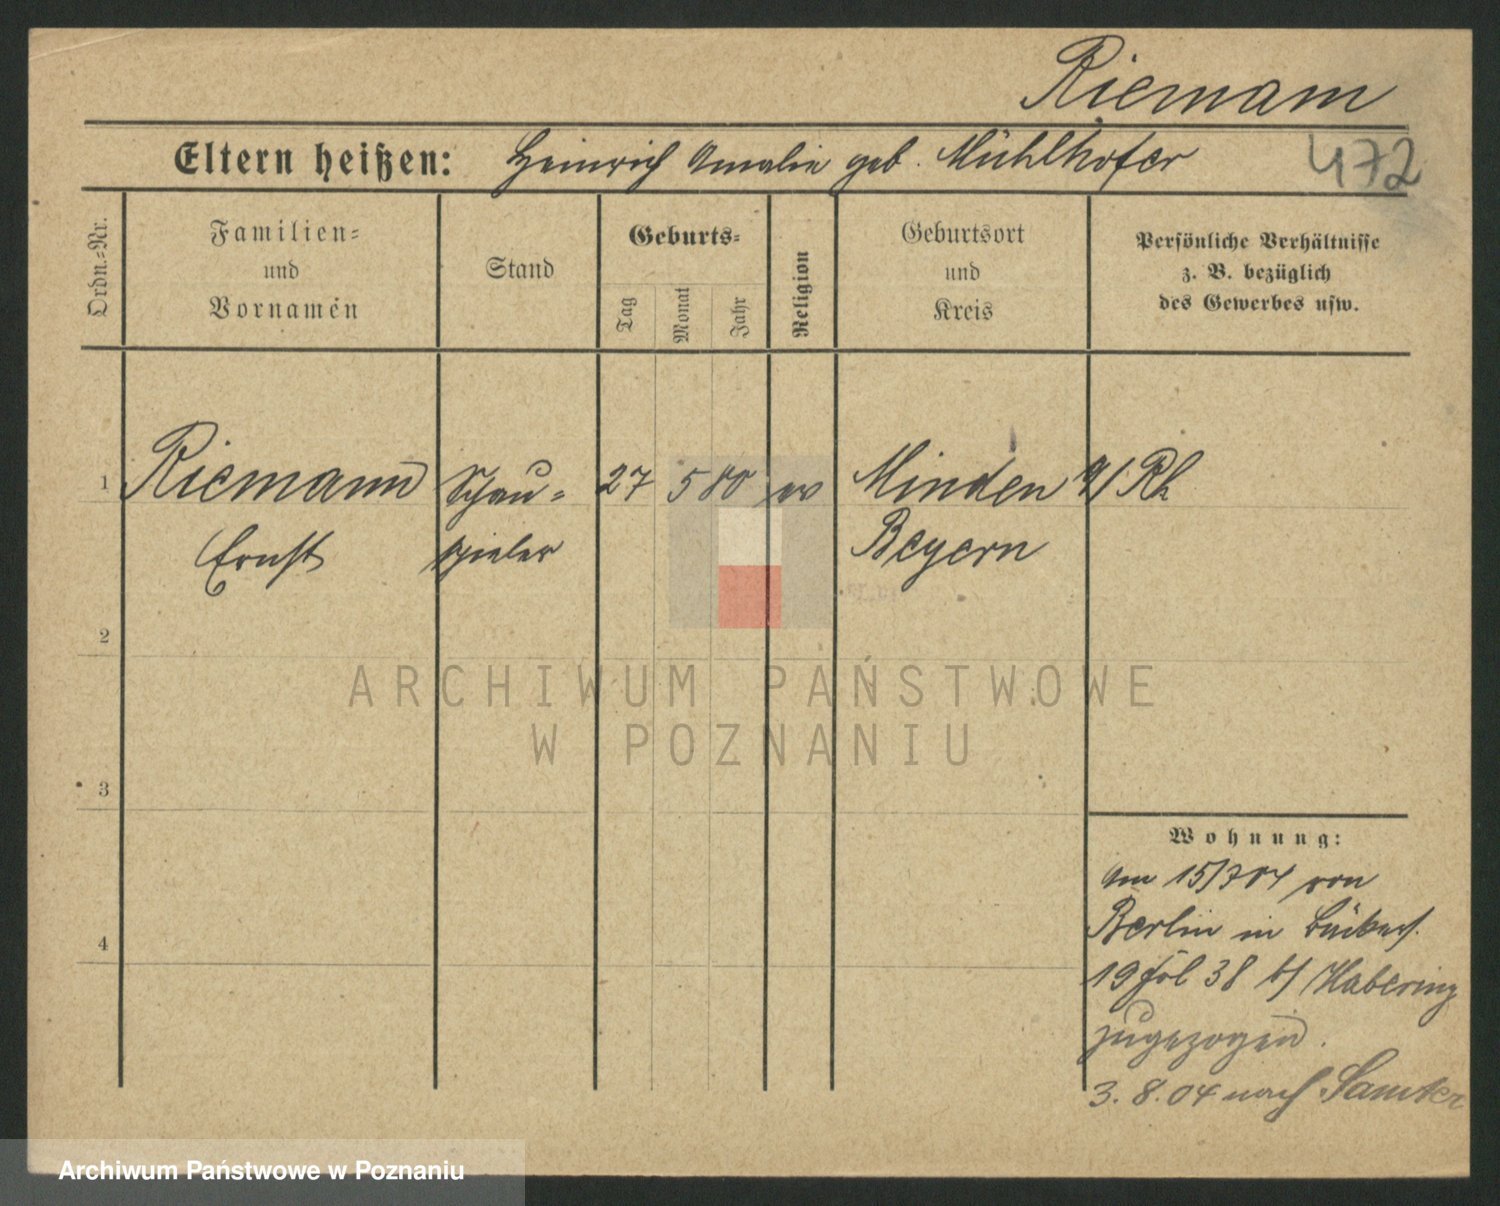 Riemann
472
Eltern heißen: Heinrich Amalie geb. Mühlhofer
Ordn.-Nr.
Familien-
und
Vornamen
Stand
Geburts-
Tag
Monat
Jahr
Religion
Geburtsort
und
Kreis
Persönliche Verhältnisse
z. B. bezüglich
des Gewerbes usw.
1 Riemann Schau- 27 5 80 ev Minden a/Rh
Ernst spieler Beyern
2
3
4
Wohnung:
Am 15/7 04 von
Berlin in
19 38 b/ Habering
zugezogen.
3. 8. 04 nach Samter
ARCHIWUM PAŃSTWOWE
W POZNANIU
Archiwum Państwowe w Poznaniu